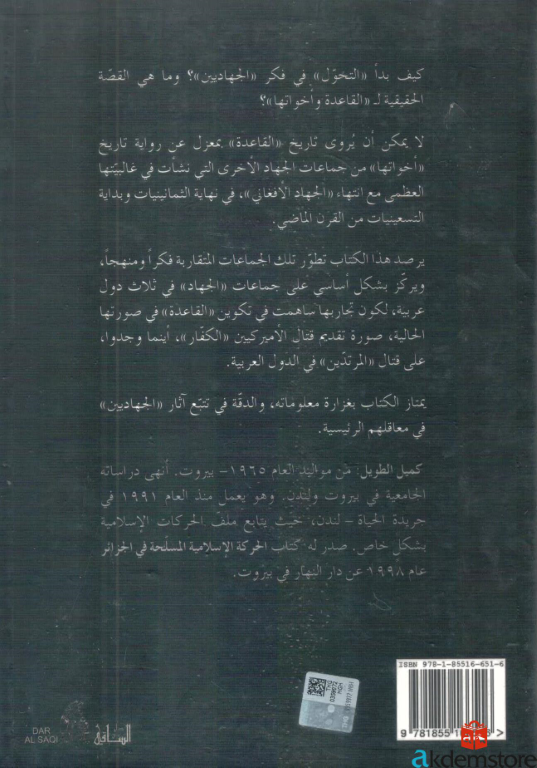 كيف بدأ «التحوّل» في فكر «الجهاديين»؟ وما هي القصّة
الحقيقية لـ «القاعدة وأخواتها»؟
لا يمكن أن يُروى تاريخ «القاعدة» بمعزل عن رواية تاريخ
«أخواتها» من جماعات الجهاد الأخرى التي نشأت في غالبيّتها
العظمى مع انتهاء «الجهاد الأفغاني»، في نهاية الثمانينيات وبداية
التسعينيات من القرن الماضي.
يرصد هذا الكتاب تطوّر تلك الجماعات المتقاربة فكراً ومنهجاً،
ويركّز بشكل أساسي على جماعات «الجهاد» في ثلاث دول
عربية، لكون تجاربها ساهمت في تكوين «القاعدة» في صورتها
الحالية، صورة تقديم قتال الأميركيين «الكفّار»، أينما وجدوا،
على قتال «المرتدّين» في الدول العربية.
يمتاز الكتاب بغزارة معلوماته، والدقّة في تتبّع آثار «الجهاديين»
في معاقلهم الرئيسية.
كميل الطويل: من مواليد العام ١٩٦٥ - بيروت. أنهى دراساته
الجامعية في بيروت ولندن. وهو يعمل منذ العام ١٩٩١ في
جريدة الحياة - لندن، حيث يتابع ملف الحركات الإسلامية
بشكل خاص. صدر له كتاب الحركة الإسلامية المسلّحة في الجزائر
عام ١٩٩٨ عن دار النهار في بيروت.
ISBN 978-1-85516-651-6
9 781855
DAR
AL SAQI
الساقي
akdemstore